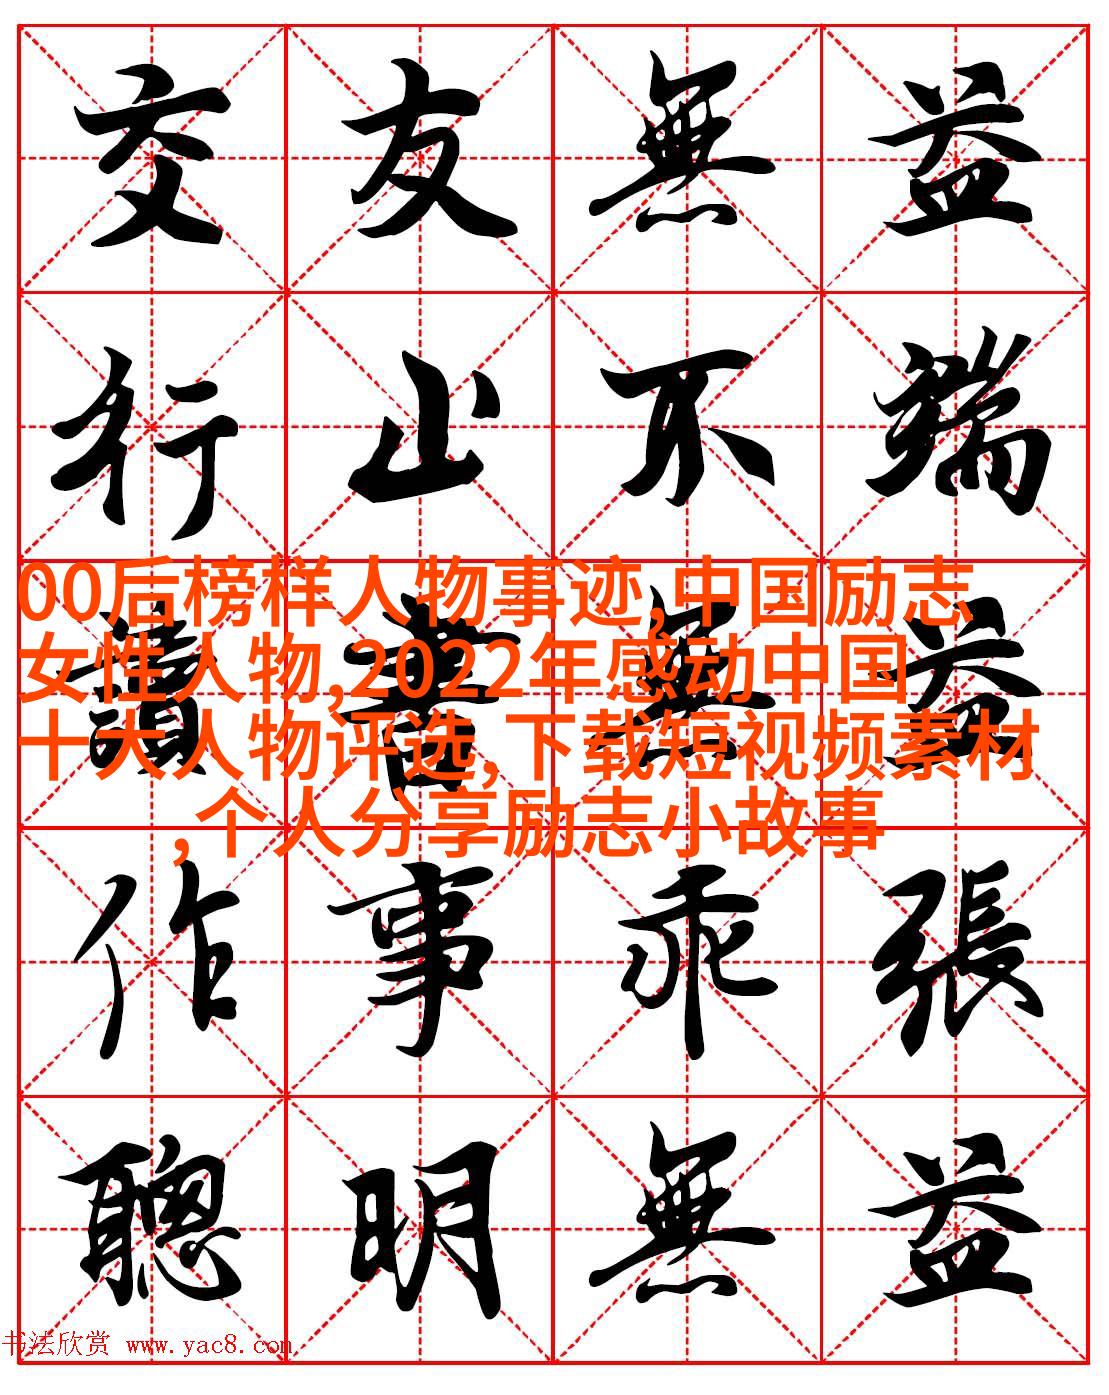 交友無益
行止不端
00后榜样人物事迹,中国励志
女性人物,2022年感动中国
十大人物评选,下载短视频素材
,个人分享励志小故事
讀書無益
作事乖張
聰明無益
书法欣赏 www.yac8.com